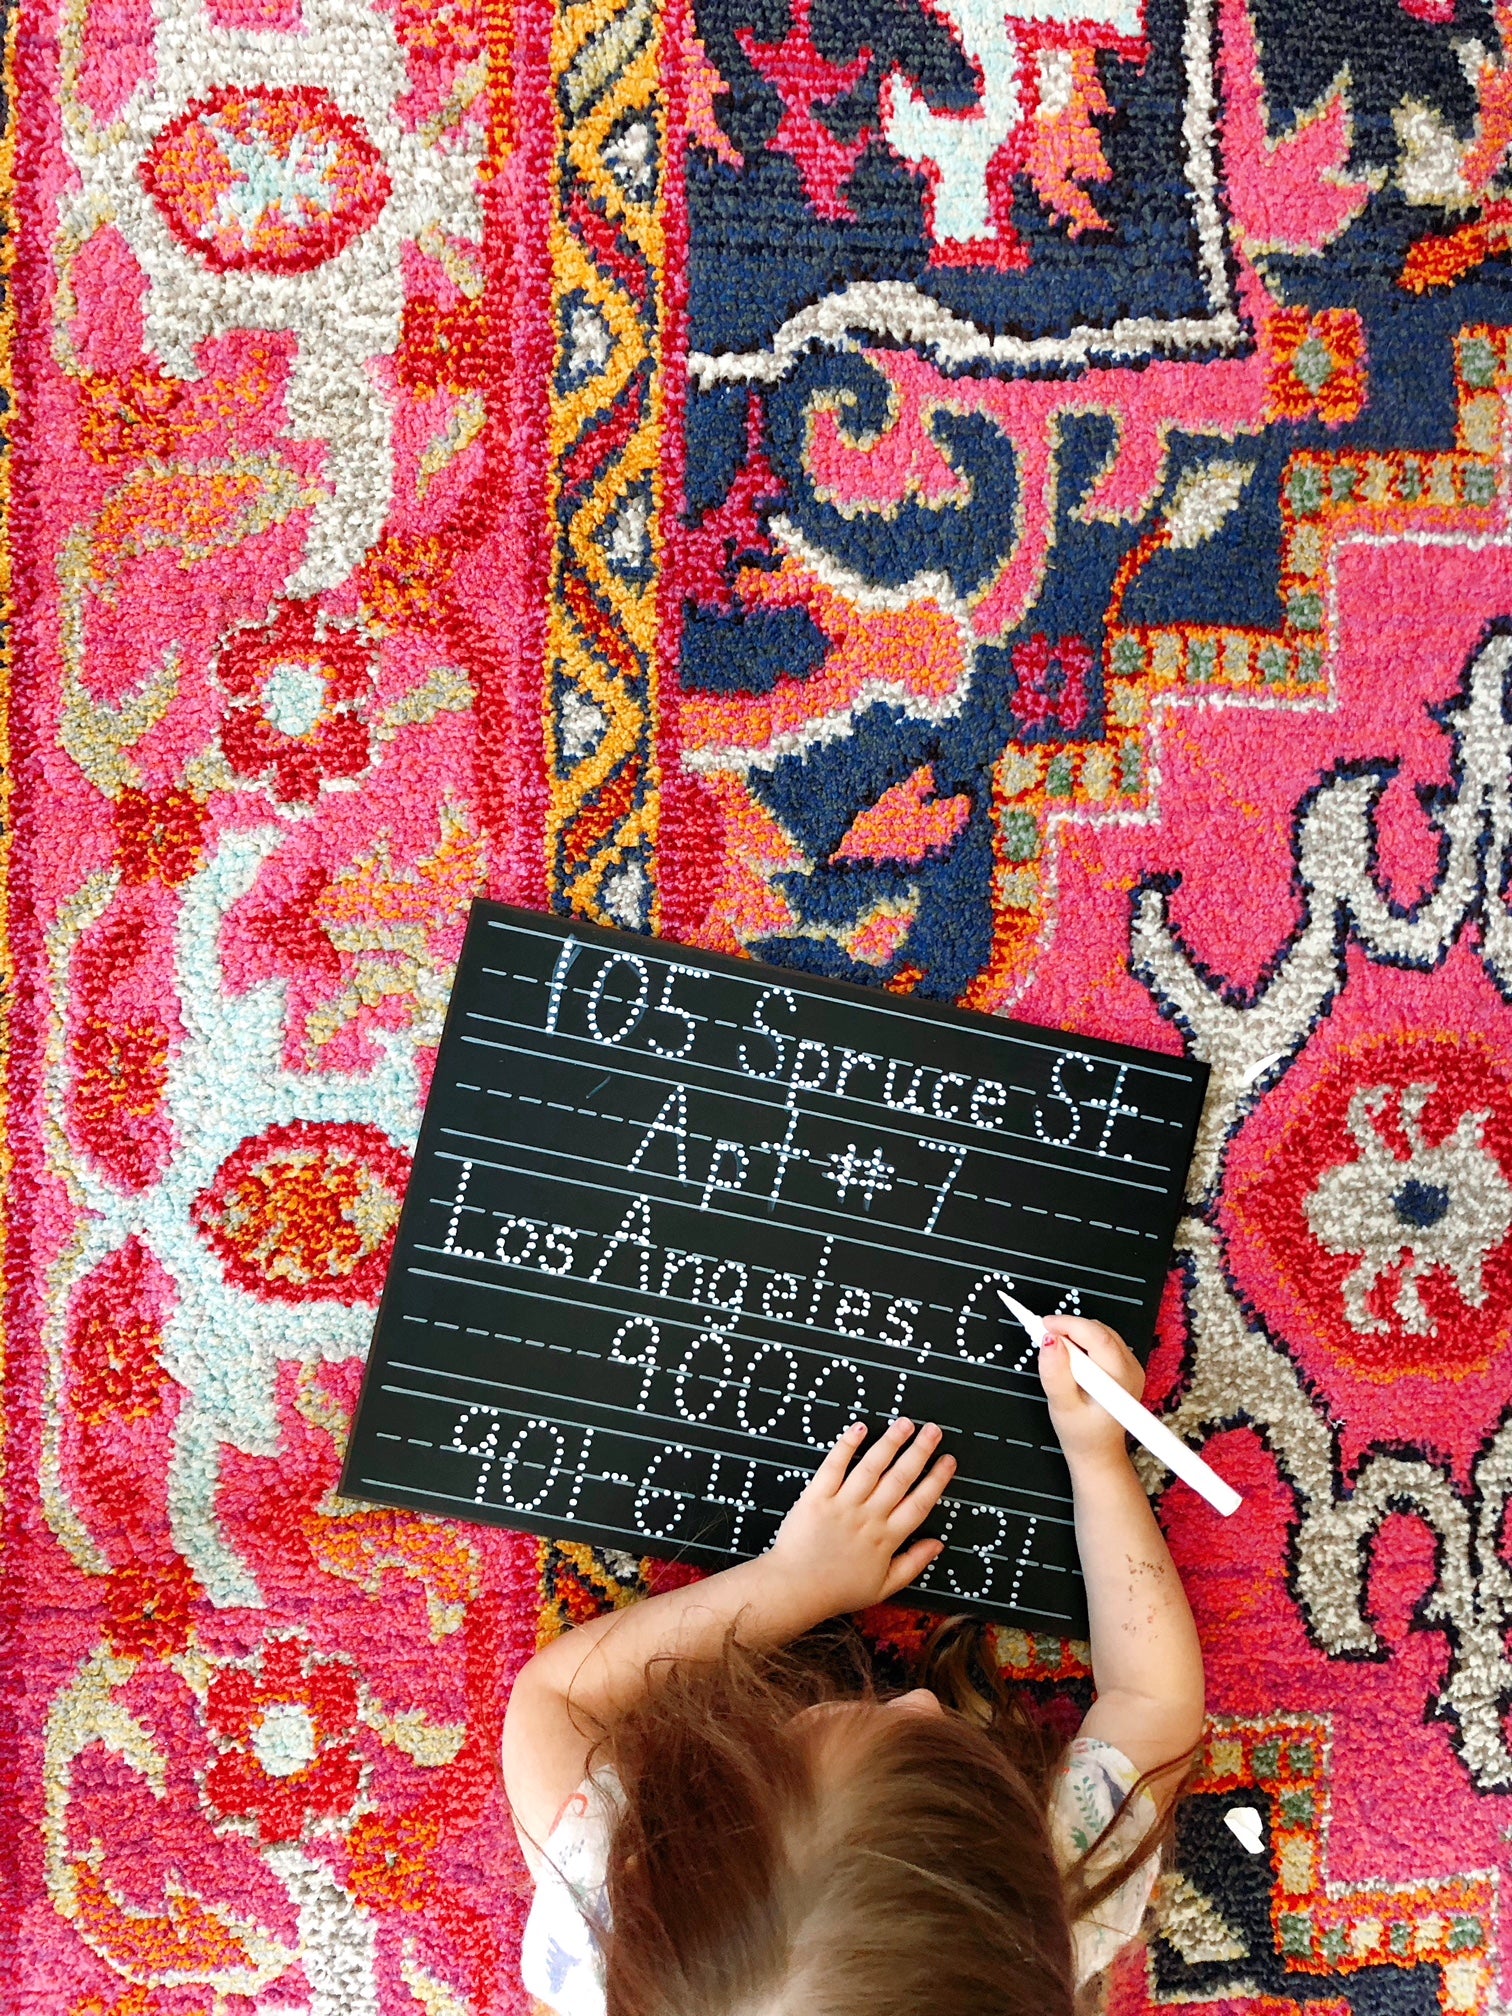 105 Spruce St.
Apt #7
Los Angeles, CA
90001
901-64